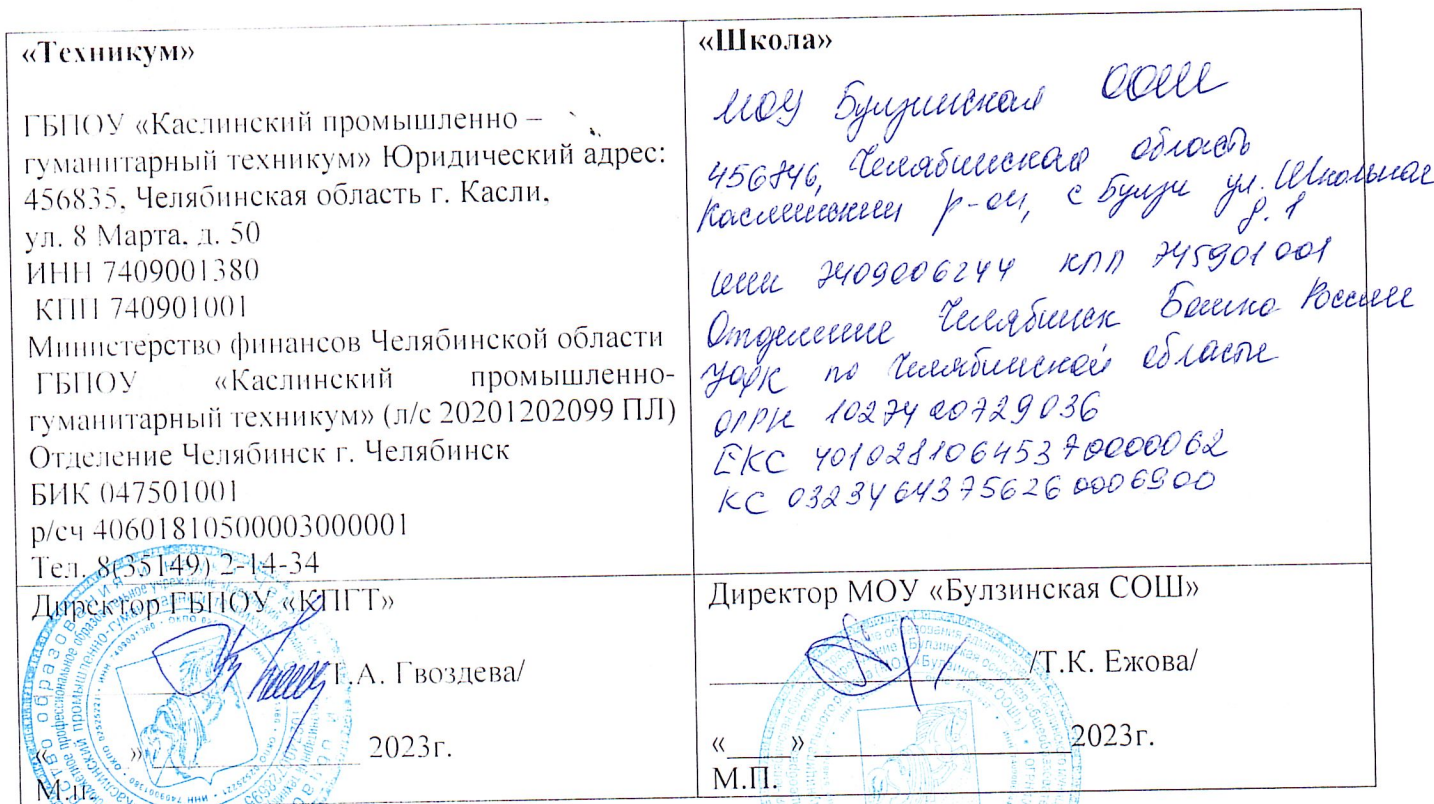 «Техникум»
ГБПОУ «Каслинский промышленно –
гуманитарный техникум» Юридический адрес:
456835, Челябинская область г. Касли,
ул. 8 Марта, д. 50
ИНН 7409001380
КПП 740901001
Министерство финансов Челябинской области
ГБПОУ «Каслинский промышленно-
гуманитарный техникум» (л/с 20201202099 ПЛ)
Отделение Челябинск г. Челябинск
БИК 047501001
р/сч 40601810500003000001
Тел. 8(35149) 2-14-34
«Школа»
МОУ Булзинская СОШ
456846, Челябинская область
Каслинский р-он, с Булзи ул. Школьная
д. 1
ИНН 7409006244 КПП 745901001
Отделение Челябинск Банка России
УФК по Челябинской области
ОГРН 1027400729036
ЕКС 40102810645370000062
КС 03234643756260006900
Директор ГБПОУ «КПГТ»
.А. Гвоздева/
« » 2023г.
М.п.
Директор МОУ «Булзинская СОШ»
/Т.К. Ежова/
«____» ____________________2023г.
М.П.